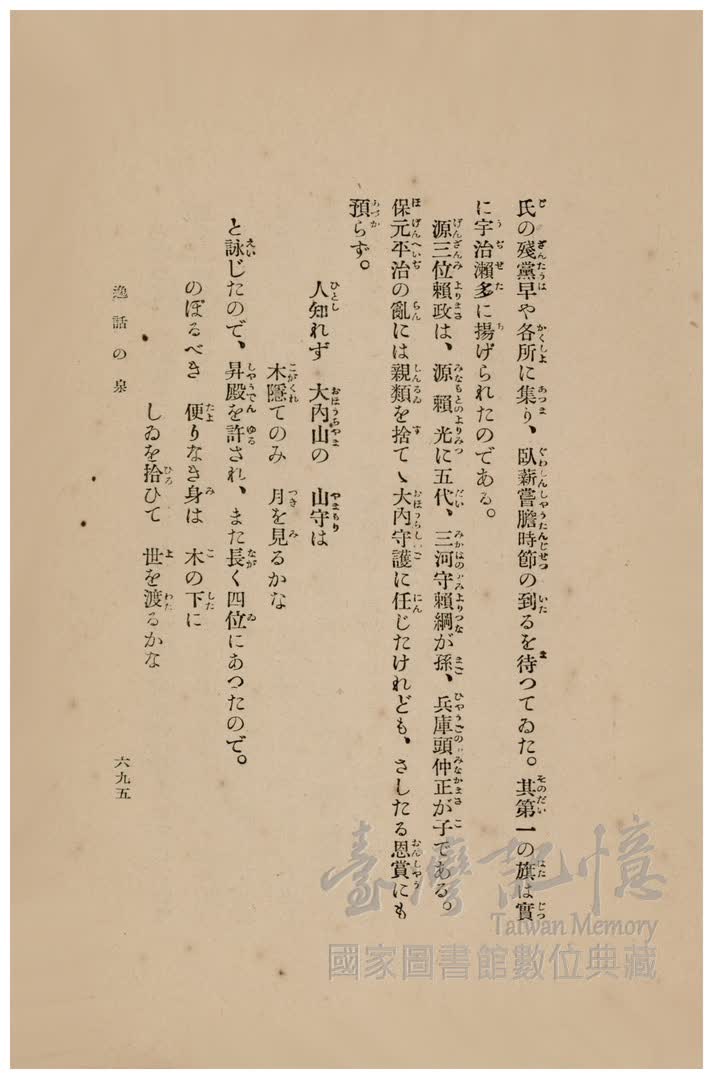 氏の殘黨早や各所に集り、臥薪嘗膽時節の到るを待つてゐた。其第一の旗は實
に宇治瀨多に揚げられたのである。
源三位賴政は、源賴光に五代、三河守賴綱が孫、兵庫頭仲正が子である。
保元平治の亂には親類を捨てゝ大內守護に任じたけれども、さしたる恩賞にも
預らず。
人知れず 大內山の 山守は
木隱てのみ 月を見るかな
と詠じたので、昇殿を許され、また長く四位にあつたので。
のぼるべき 便りなき身は 木の下に
しゐを拾ひて 世を渡るかな
逸話の泉
六九五
臺灣記憶
Taiwan Memory
國家圖書館數位典藏